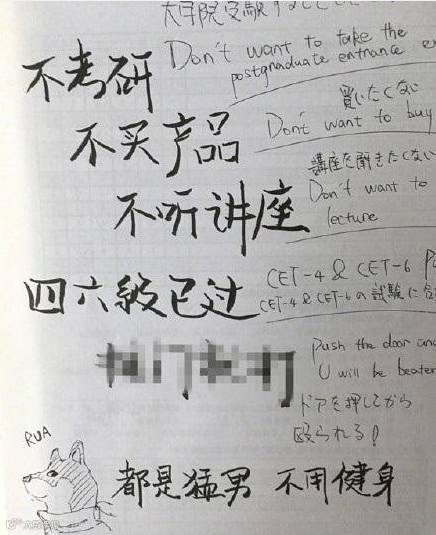 大学院受験
不考研
Don't want to take the
postgraduate entrance
不买产品
買いたくない
Don't want to buy
不听讲座
講座を聞きたくない
Don't want to
lecture
四六级已过
CET-4 & CET-6
CET-4 & CET-6の試験に
Push the door and
U will be beaten
ドアを押してから
殴られる!
RUA
都是猛男 不用健身